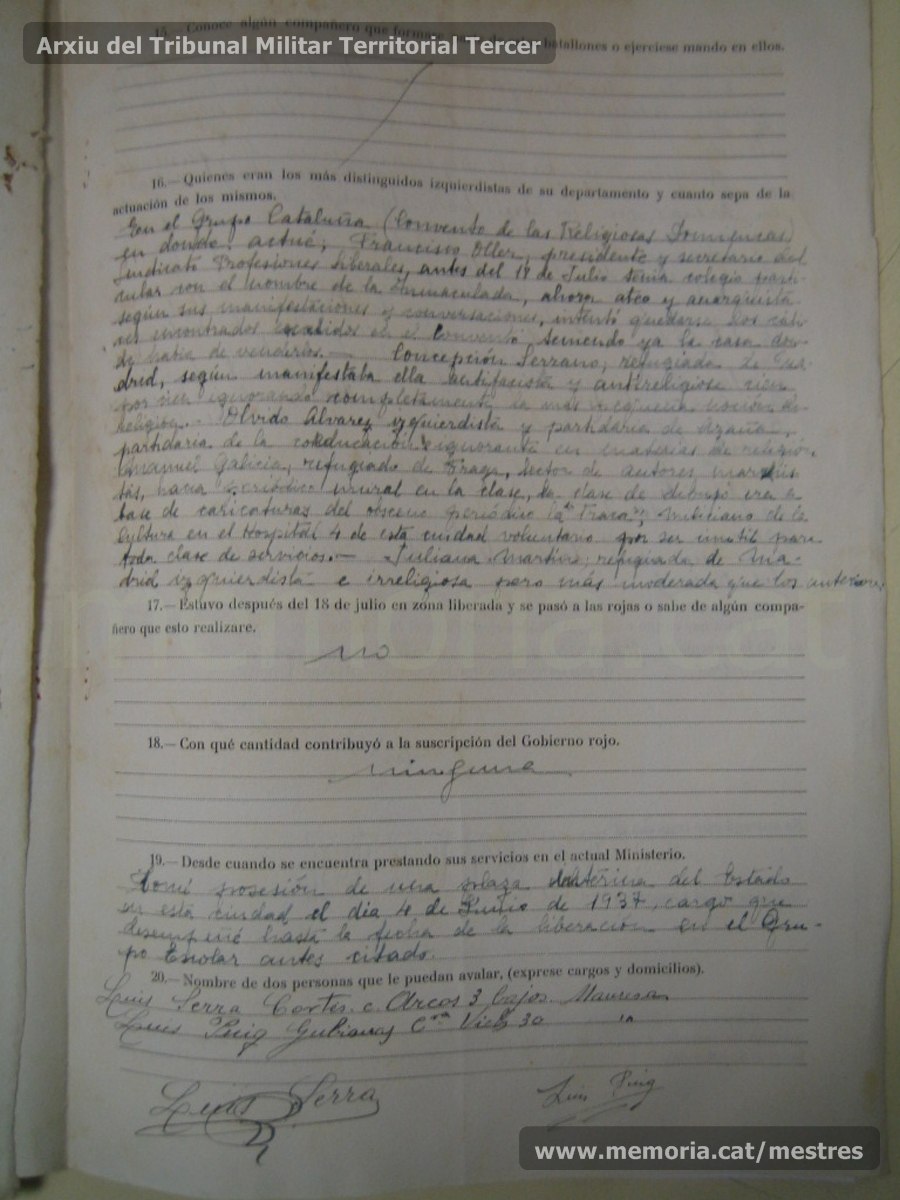 Arxiu del Tribunal Militar Territorial Tercer
15.—Conoce algún compañero que formase batallones o ejerciese mando en ellos.
16.—Quienes eran los más distinguidos izquierdistas de su departamento y cuanto sepa de la
actuación de los mismos.
En el Grupo Cataluña (Convento de las Religiosas
en donde actué; Francisco Oller, presidente y secretario del
Sindicato Profesiones liberales, antes del 18 de Julio tenia colegio parti-
cular con el nombre de la Inmaculada, ahora ateo y anarquista
según sus manifestaciones y conversaciones, intentó quedarse los
encontrados en el Convento teniendo ya la casa don-
de habia de venderlos.— Concepción Serrano, refugiada de Ma-
drid, según manifestaba ella antifascista y antireligiosa
ignorando completamente la más noción de
religión.— Olvido Alvarez izquierdista y partidaria de Azaña,
partidaria de la coeducación e ignorante en materias de religión.
Manuel Galicia, refugiado de Fraga, lector de autores marxis-
tas, hacia Periódico mural en la clase, la clase de dibujo era a
base de caricaturas del obsceno periódico "La Traca", miliciano de la
Cultura en el Hospital 4 de esta ciudad voluntario por ser inutil para
toda clase de servicios.— Juliana Martino; refugiada de Ma-
drid izquierdista e irreligiosa pero más moderada que los anteriores.
17.—Estuvo después del 18 de julio en zona liberada y se pasó a las rojas o sabe de algún compa-
ñero que esto realizare.
no
18.—Con qué cantidad contribuyó a la suscripción del Gobierno rojo.
ninguna
19.—Desde cuando se encuentra prestando sus servicios en el actual Ministerio.
Tomé posesión de una plaza interina del Estado
en esta ciudad el dia 4 de Junio de 1937, cargo que
desempeñé hasta la fecha de la liberación en el Gru-
po Escolar antes citado.
20.—Nombre de dos personas que le puedan avalar, (exprese cargos y domicilios).
Luis Serra Cortés c. Arcos 3 bajos Manresa
Luis Puig Cra Vich 30 "
Luis Serra
Luis Puig
www.memoria.cat/mestres